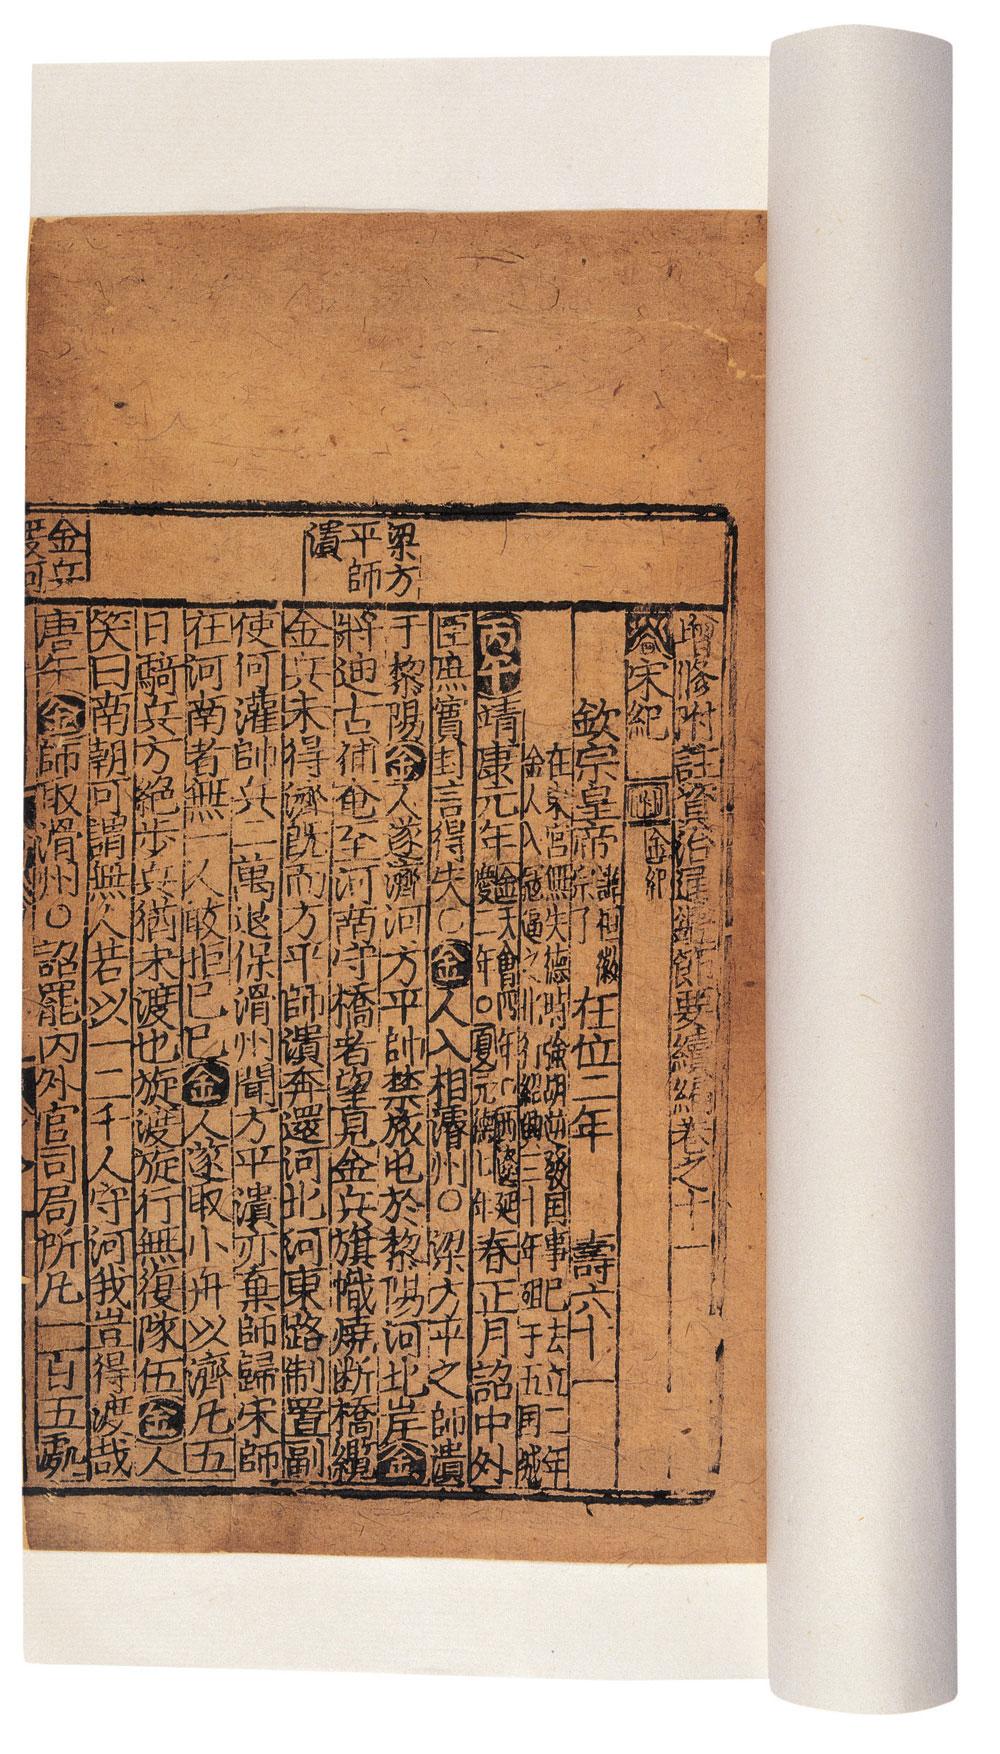 增修附註資治通鑑節要續編卷之十一
宋紀 附 金紀
欽宗皇帝 諱桓徽宗子 在位二年 壽六十一
在東宮無失德時強胡出發国事已去立二年
金人入寇逼之北行紹興三十年殂于五国城
丙午靖康元年 金天會四年 西遼延慶二年○夏元德七年 春正月詔中外
臣庶實封言得失○金人入相濬州○梁方平之師潰
于黎陽金人遂濟河方平帥禁旅屯於黎陽河北岸金
將迪古補奄至河南守橋者望見金兵旗幟燒断橋纜
金兵未得濟既而方平師潰奔還河北河東路制置副
使何灌帥兵二萬退保滑州聞方平潰亦棄師歸宋師
在河南者無一人敢拒己巳金人遂取小舟以濟凡五
日騎兵方絶步兵猶未渡也旋渡旋行無復隊伍金人
笑曰南朝可謂無人若以一二千人守河我豈得渡哉
庚午金師取滑州○詔罷内外官司局所凡一百五處
梁方平師潰
金兵渡河